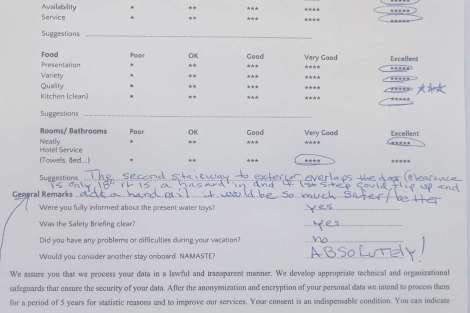 Availability * ** *** **** *****
Service * ** *** **** *****
Suggestions
Food Poor OK Good Very Good Excellent
Presentation * ** *** **** *****
Variety * ** *** **** *****
Quality * ** *** **** ***** ★★★
Kitchen (clean) * ** *** **** *****
Suggestions
Rooms/ Bathrooms Poor OK Good Very Good Excellent
Neatly * ** *** **** *****
Hotel Service
(Towels, Bed...) * ** *** **** *****
Suggestions The second stairway to exterior overlaps the door (clearance
is only 18" it is a hazard in and if 1st step could flip up and
General Remarks add a hand rail it would be so much safer/better
Were you fully informed about the present water toys? yes
Was the Safety Briefing clear? yes
Did you have any problems or difficulties during your vacation? no
Would you consider another stay onboard. NAMASTE? ABSOLUTELY!
We assure you that we process your data in a lawful and transparent manner. We develop appropriate technical and organizational
safeguards that ensure the security of your data. After the anonymization and encryption of your personal data we intend to process them
for a period of 5 years for statistic reasons and to improve our services. Your consent is an indispensable condition. You can indicate